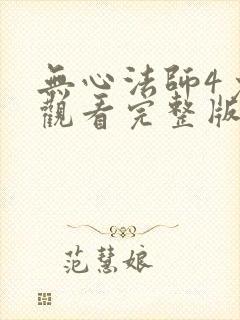 無心法師4
觀看完整版
范慧娘